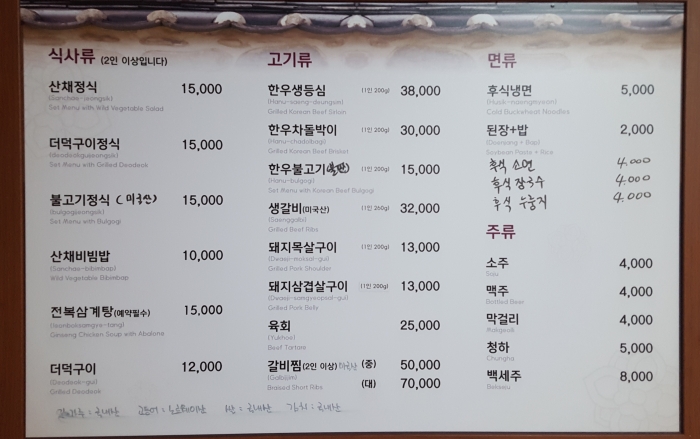 식사류 (2인 이상입니다)
산채정식 15,000
(Sanchae-jeongsik)
Set Menu with Wild Vegetable Salad
더덕구이정식 15,000
Set Menu with Grilled Deodeok
불고기정식 (미국산) 15,000
(bulgogijeongsik)
Set Menu with Bulgogi
산채비빔밥 10,000
(Sanchae-bibimbap)
Wild Vegetable Bibimbap
전복삼계탕(예약필수) 15,000
Ginseng Chicken Soup with Abalone
더덕구이 12,000
(Deodeok-gui)
Grilled Deodeok
고기류
한우생등심 (1인 200g) 38,000
(Hanu-saeng-deungsim)
Grilled Korean Beef Sirloin
한우차돌박이 (1인 200g) 30,000
(Hanu-chadolbagi)
Grilled Korean Beef Brisket
한우불고기 (1인 200g) 15,000
(Hanu-bulgogi)
Set Menu with Korean Beef Bulgogi
생갈비(미국산) (1인 260g) 32,000
(Saenggalbi)
Grilled Beef Ribs
돼지목살구이 (1인 200g) 13,000
(Dwaeji-moksal-gui)
Grilled Pork Shoulder
돼지삼겹살구이 (1인 200g) 13,000
(Dwaeji-samgyeopsal-gui)
Grilled Pork Belly
육회 25,000
(Yukhoe)
Beef Tartare
갈비찜(2인 이상) 미국산 (중) 50,000
(Galbijjim) (대) 70,000
Braised Short Ribs
면류
후식냉면 5,000
(Husik-naengmyeon)
Cold Buckwheat Noodles
된장+밥 2,000
(Doenjang + Bap)
Soybean Paste + Rice
후식 소면 4,000
후식 칼국수 4,000
후식 누룽지 4,000
주류
소주 4,000
Soju
맥주 4,000
Bottled Beer
막걸리 4,000
Makgeolli
청하 5,000
Chungha
백세주 8,000
Bekseju
고등어 : 노르웨이산 쌀 : 국내산 김치 : 국내산